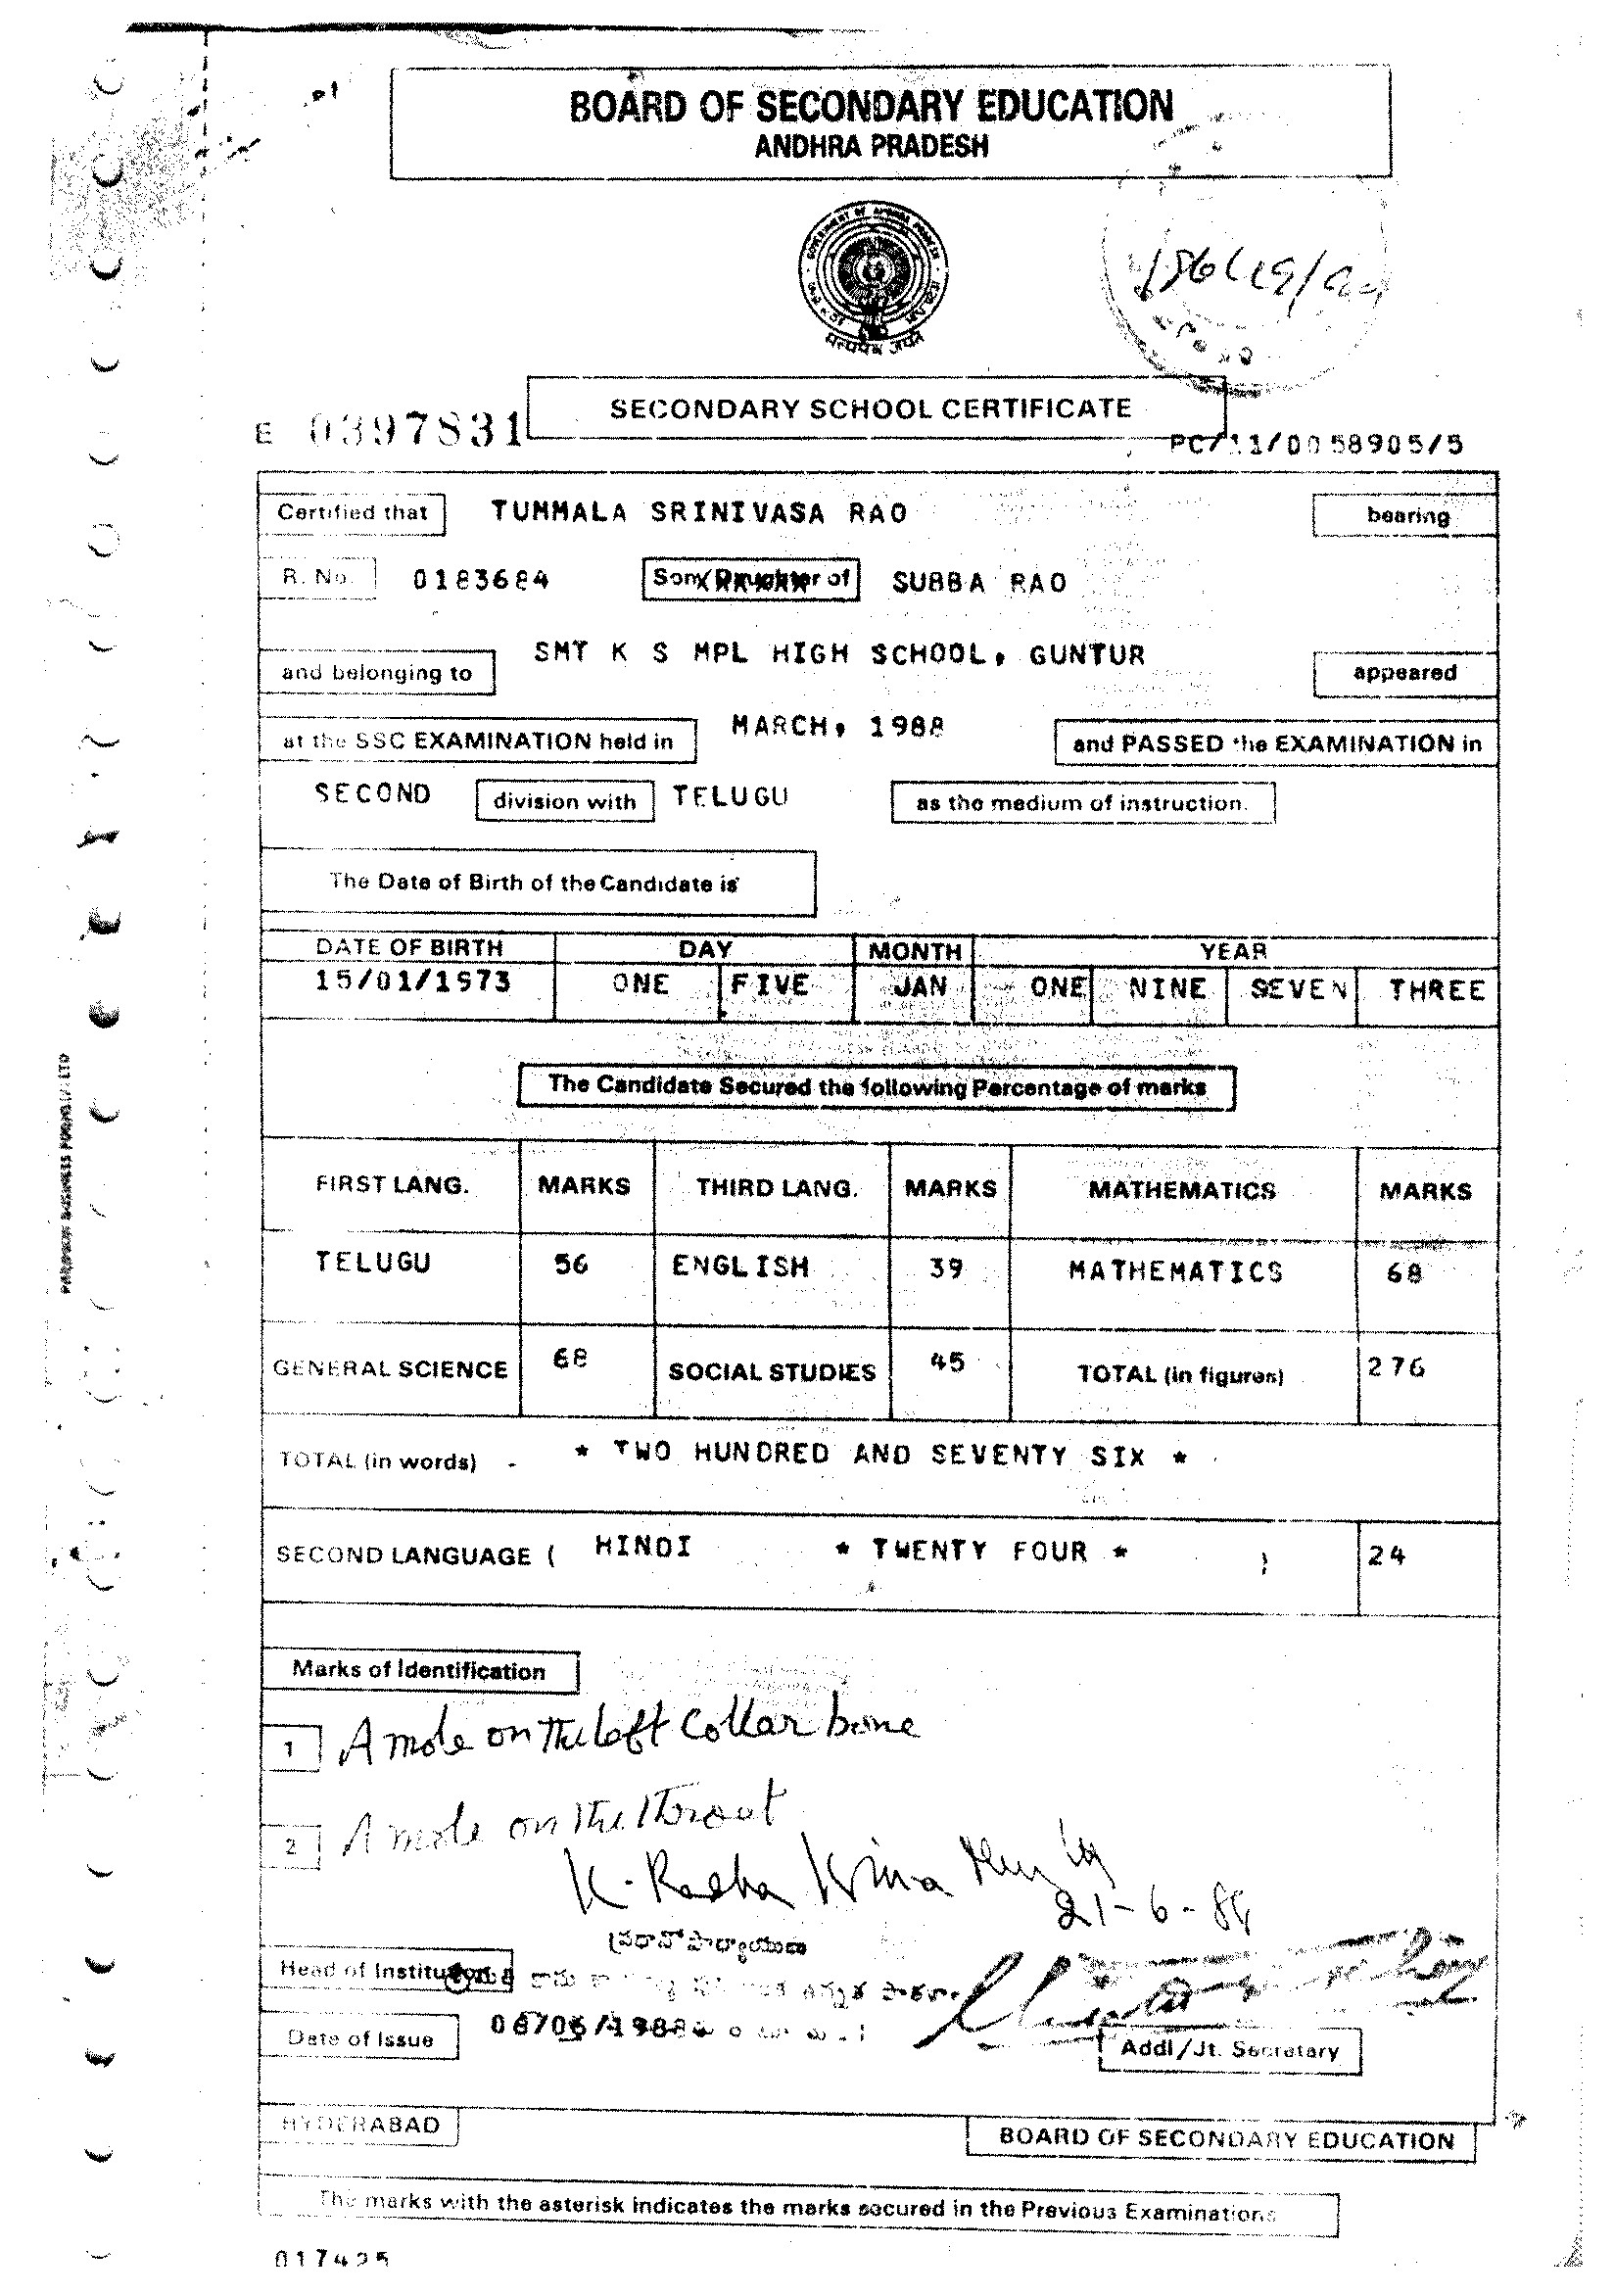 BOARD OF SECONDARY EDUCATION
ANDHRA PRADESH
सत्यमेव जयते
SECONDARY SCHOOL CERTIFICATE
E 0397831
PC/11/0058905/5
Certified that TUMMALA SRINIVASA RAO bearing
R. No. 0183684 Son/Daughter of SUBBA RAO
and belonging to SMT K S MPL HIGH SCHOOL, GUNTUR appeared
at the SSC EXAMINATION held in MARCH, 1988 and PASSED the EXAMINATION in
SECOND division with TELUGU as the medium of instruction.
The Date of Birth of the Candidate is
DATE OF BIRTH DAY MONTH YEAR
15/01/1973 ONE FIVE JAN ONE NINE SEVEN THREE
The Candidate Secured the following Percentage of marks
FIRST LANG. MARKS THIRD LANG. MARKS MATHEMATICS MARKS
TELUGU 56 ENGLISH 39 MATHEMATICS 68
GENERAL SCIENCE 68 SOCIAL STUDIES 45 TOTAL (in figures) 276
TOTAL (in words) - * TWO HUNDRED AND SEVENTY SIX *
SECOND LANGUAGE ( HINDI * TWENTY FOUR * ) 24
Marks of Identification
1 A mole on the left collar bone
2 A mole on the throat
K. Radha
21-6-88
ప్రధానోపాధ్యాయుడు
Head of Institution
Date of Issue 06/06/1988
Addl/Jt. Secretary
HYDERABAD
BOARD OF SECONDARY EDUCATION
The marks with the asterisk indicates the marks secured in the Previous Examinations
017425